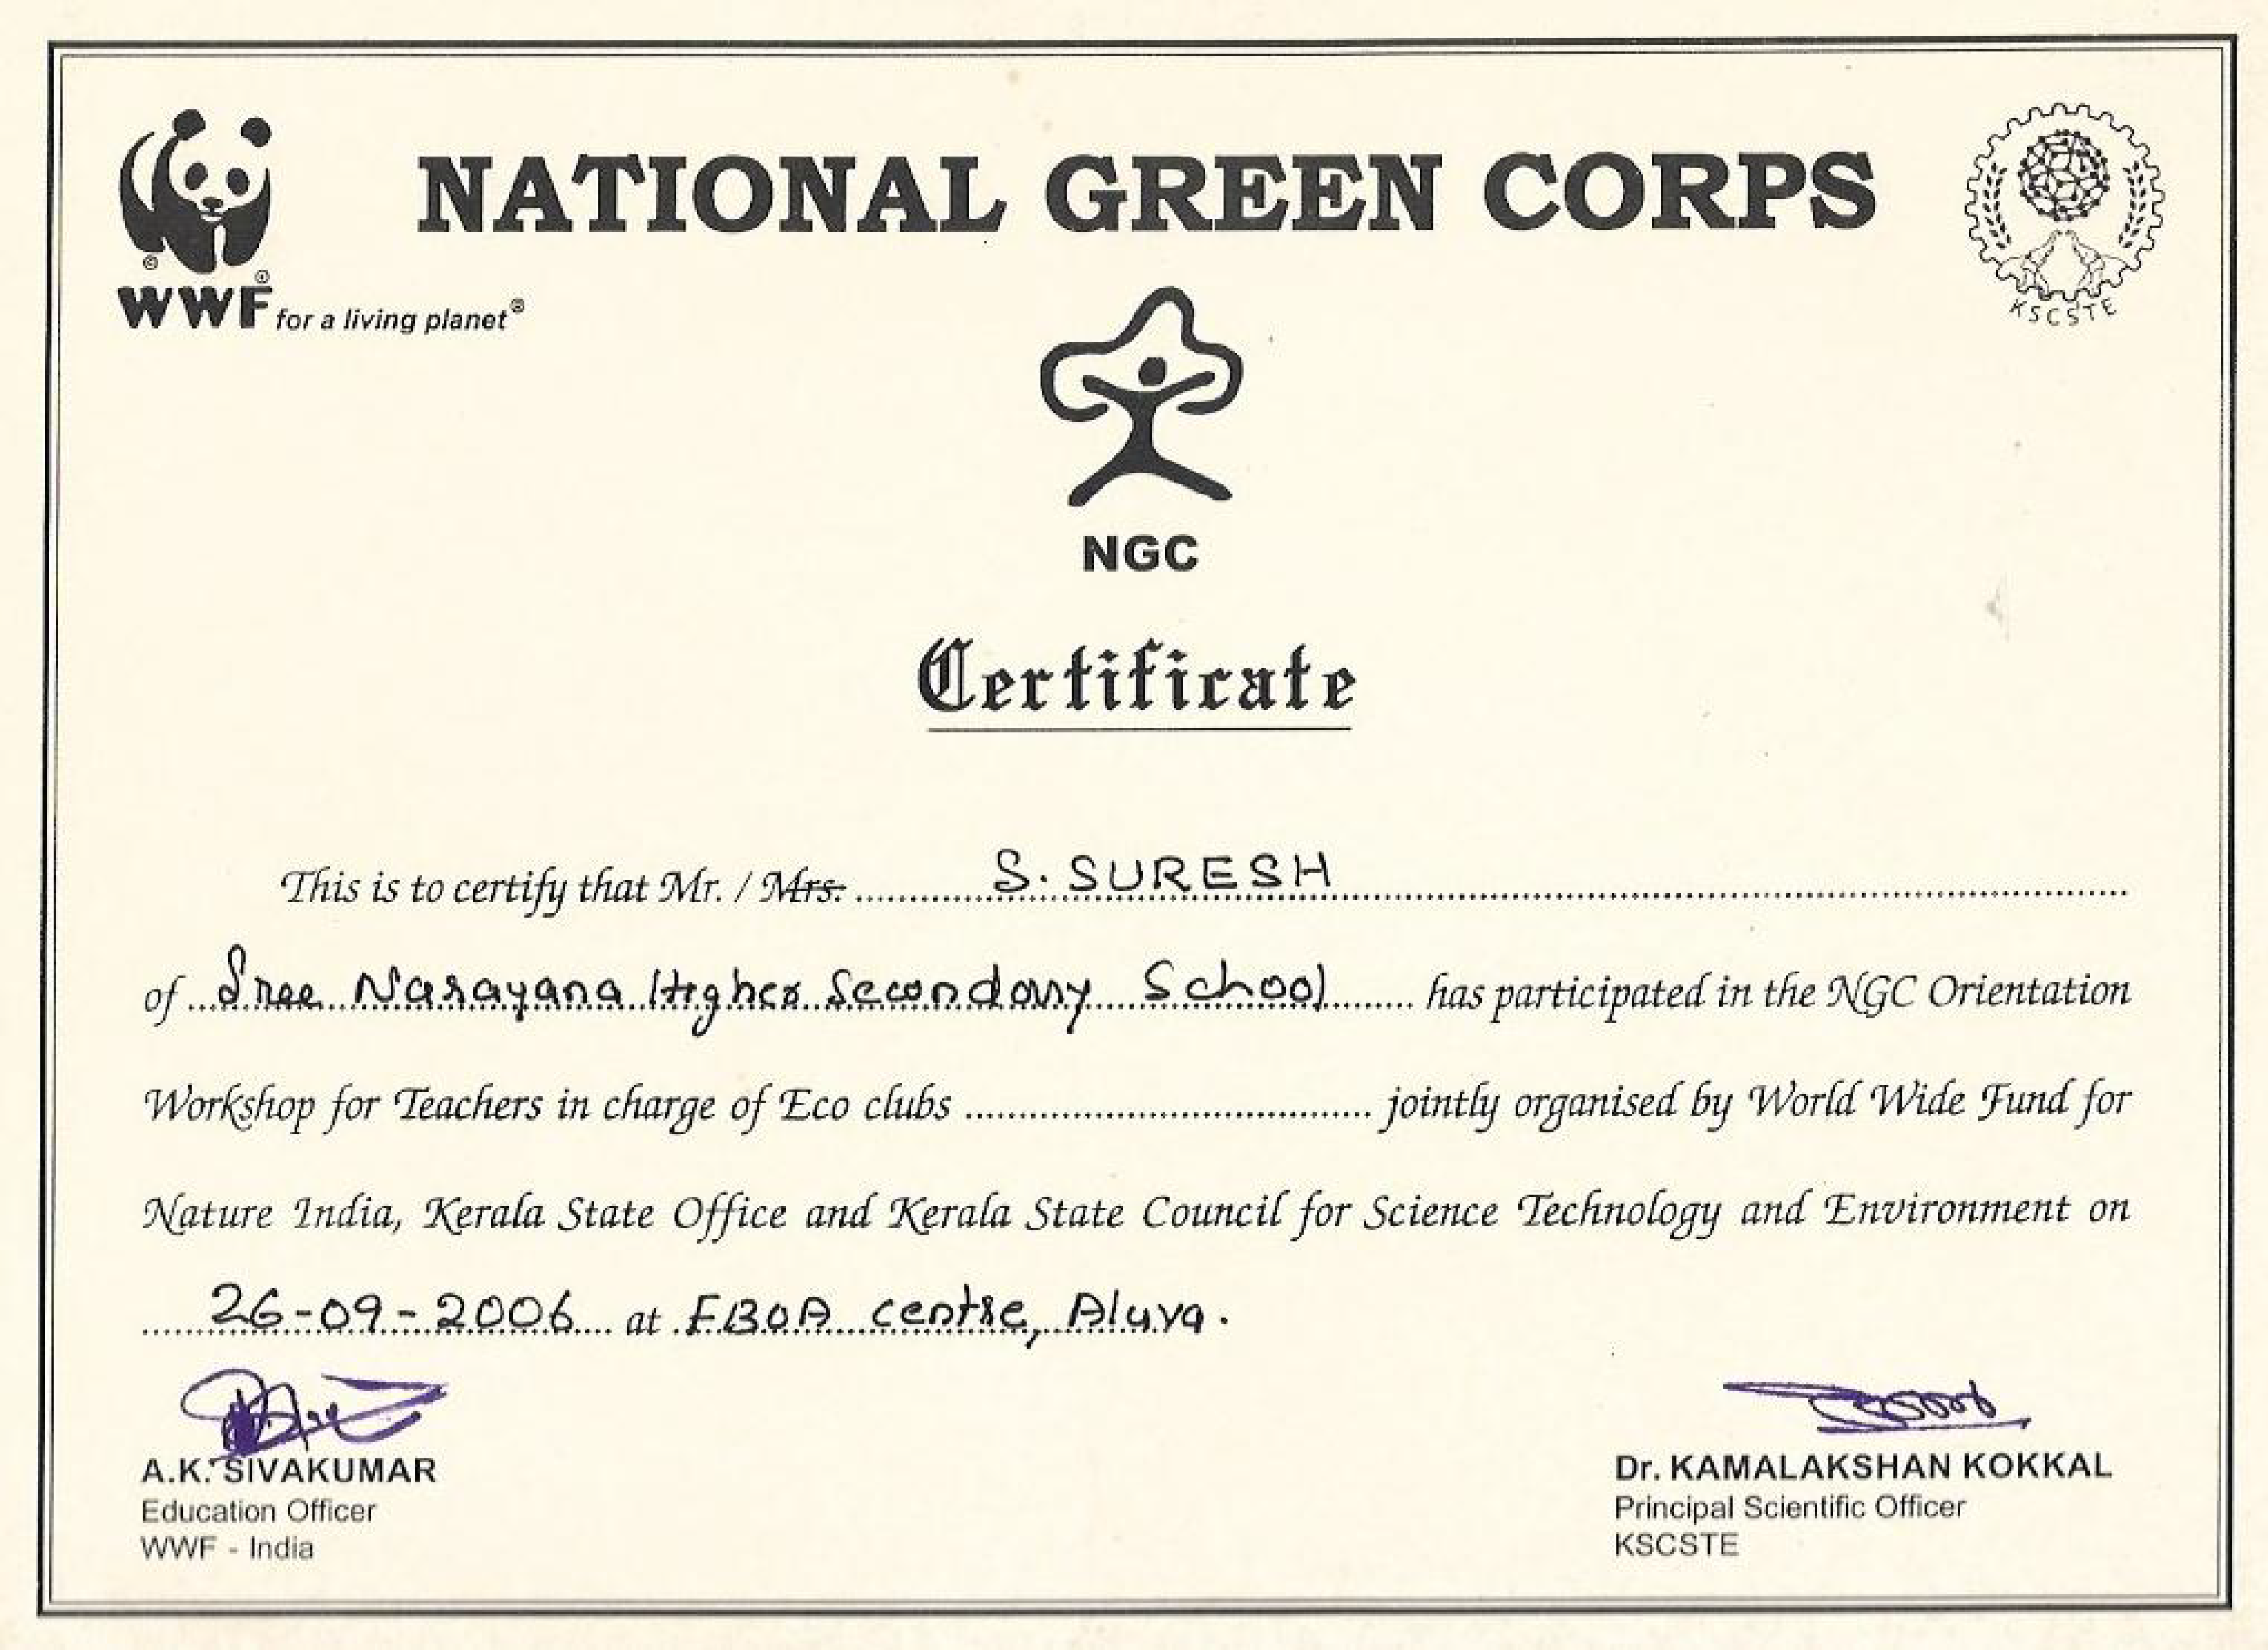 NATIONAL GREEN CORPS
WWF for a living planet®
KSCSTE
NGC
Certificate
This is to certify that Mr. / Mrs. S. SURESH
of Sree Narayana Higher Secondary School has participated in the NGC Orientation
Workshop for Teachers in charge of Eco clubs ........................ jointly organised by World Wide Fund for
Nature India, Kerala State Office and Kerala State Council for Science Technology and Environment on
26-09-2006 at FBOA centre, Aluva.
A.K. SIVAKUMAR
Education Officer
WWF - India
Dr. KAMALAKSHAN KOKKAL
Principal Scientific Officer
KSCSTE